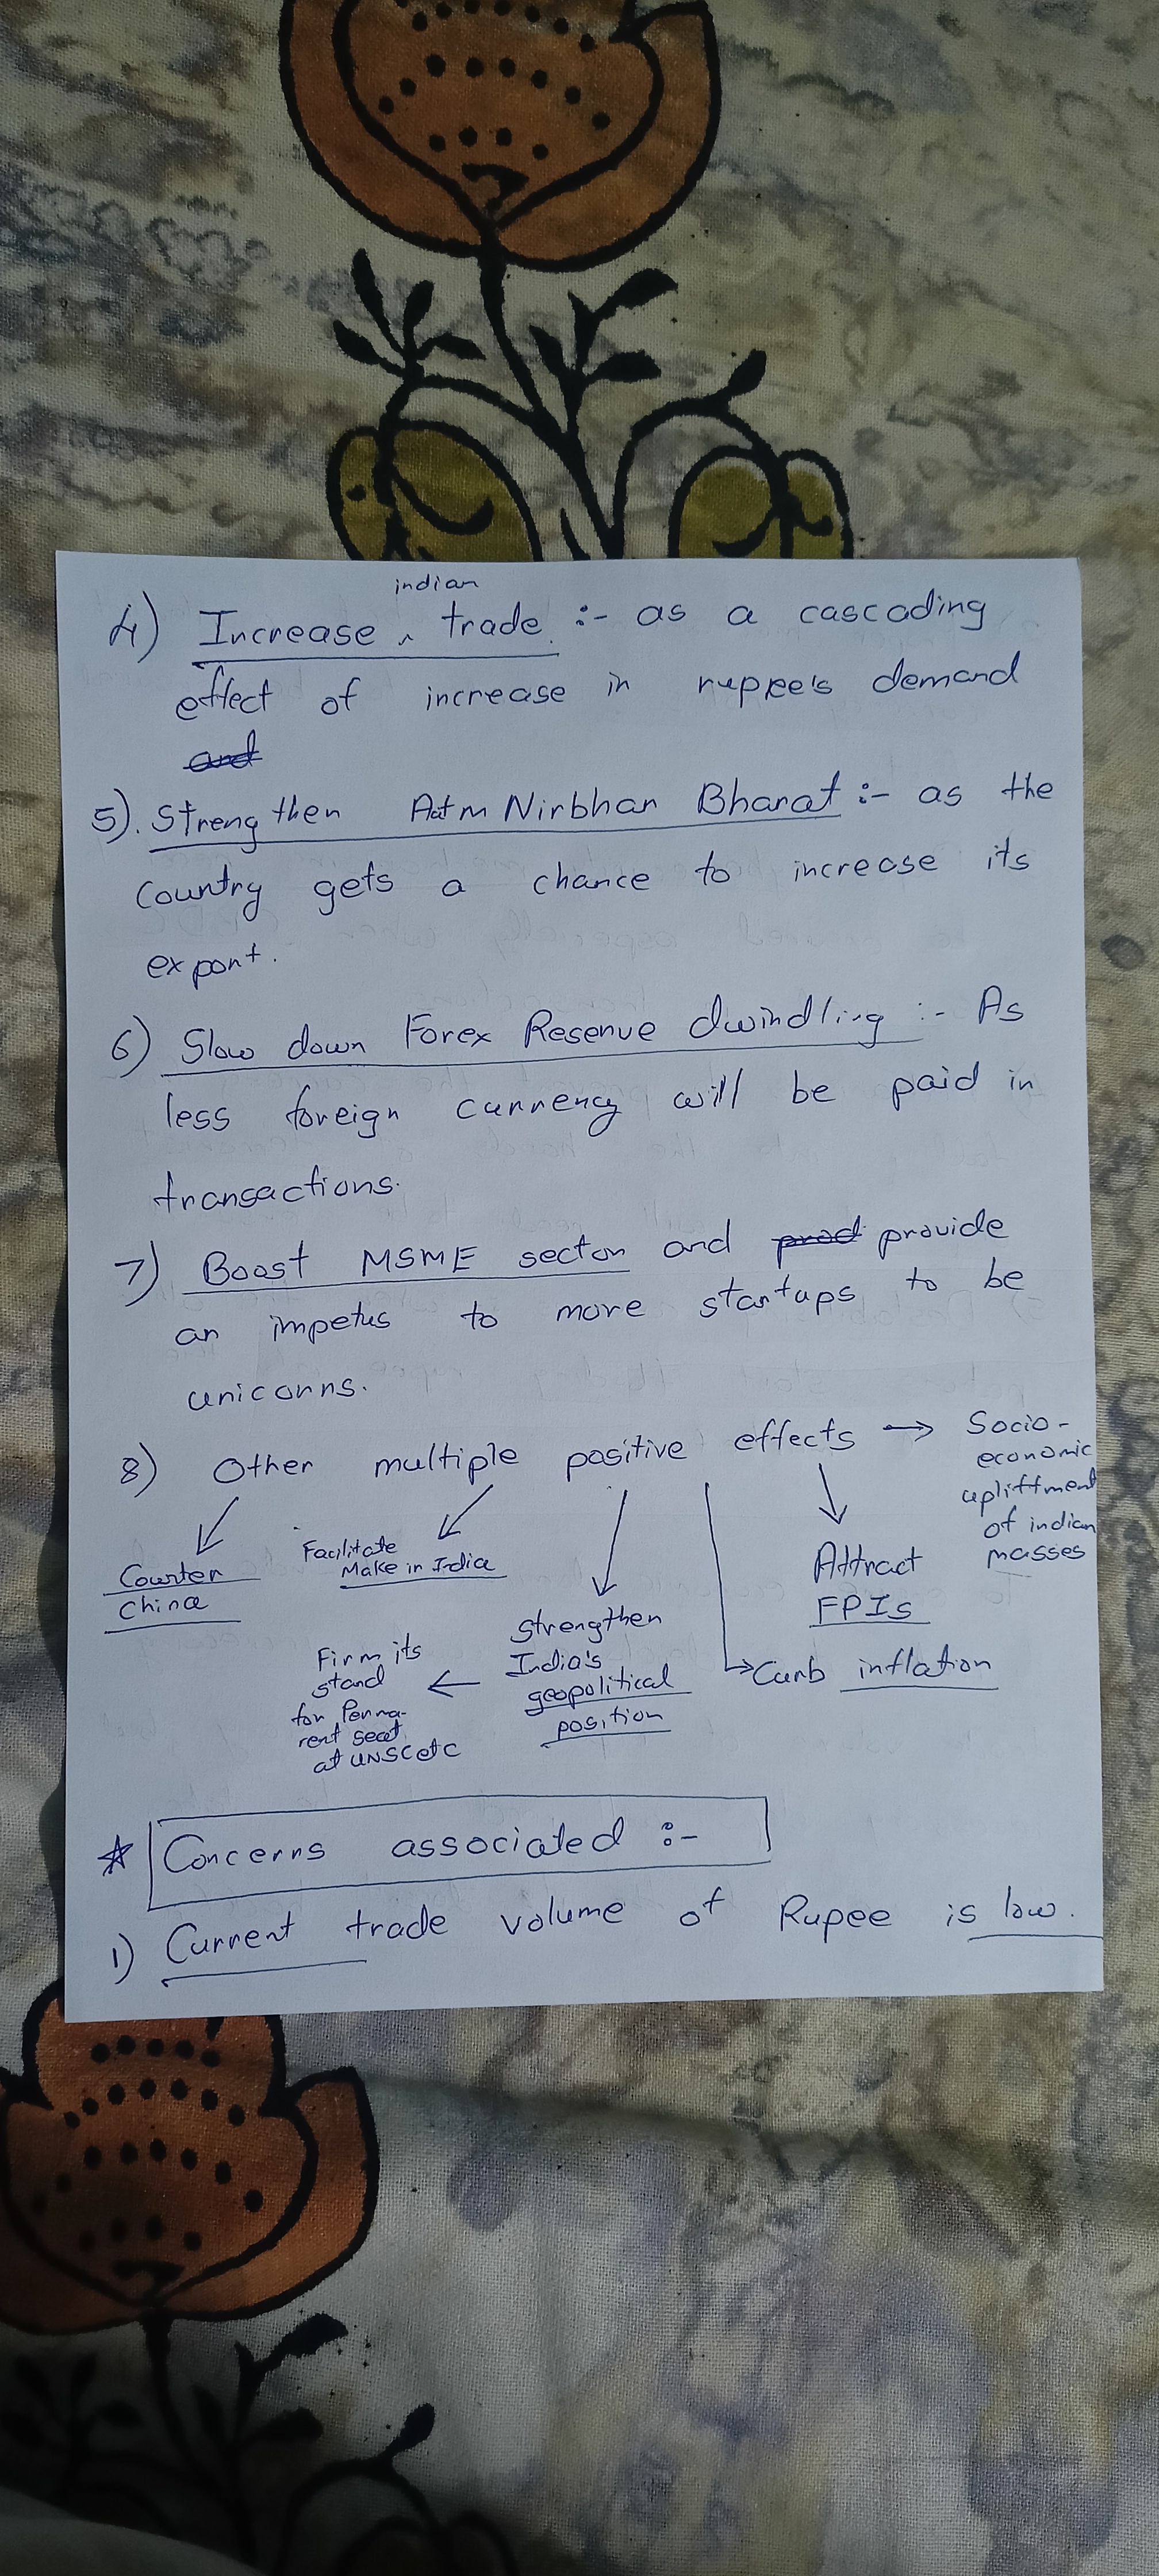 4) Increase ^ indian trade :- as a cascading
effect of increase in rupee's demand
and
5). Strengthen Aatm Nirbhar Bharat :- as the
Country gets a chance to increase its
export.
6) Slow down Forex Reserve dwindling :- As
less foreign currency will be paid in
transactions.
7) Boost MSME sector and prod provide
an impetus to more startups to be
unicorns.
8) Other multiple positive effects → Socio-
economic
upliftment
of indian
masses
Counter
China
Facilitate
Make in India
Strengthen
India's
geopolitical
position
Firm its
stand
for Perma-
rent seat
at UNSC etc
Curb inflation
Attract
FPIs
☆ Concerns associated :-
1) Current trade volume of Rupee is low.